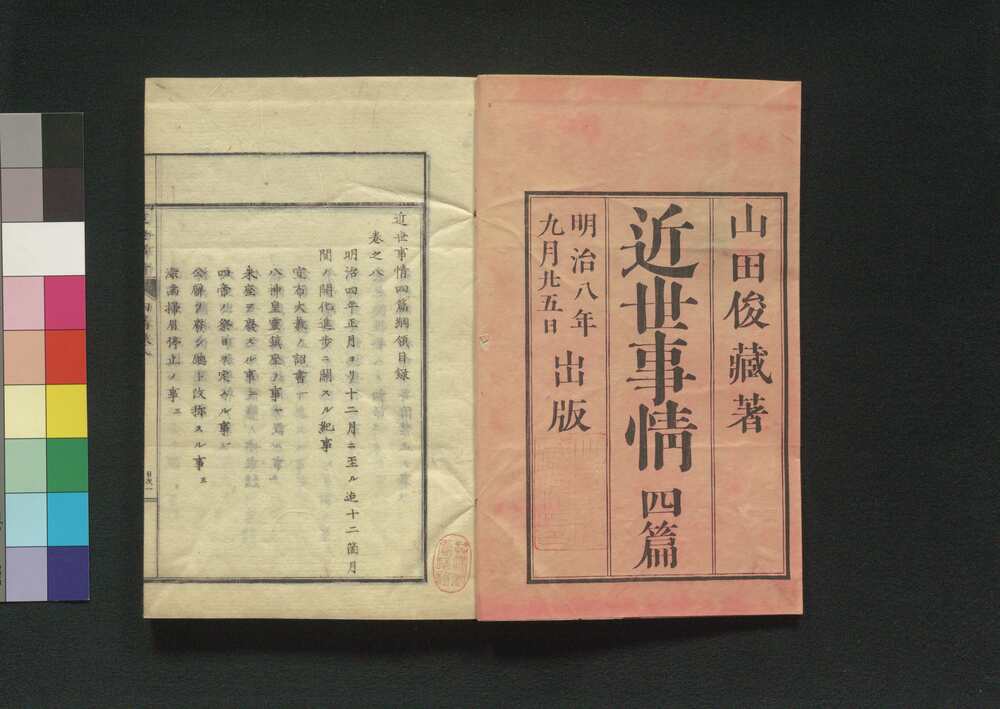 山田俊藏著
近世事情 四篇
明治八年
九月廿五日
出版
近世事情四篇綱領目録
卷之八
明治四年正月ヨリ十二月ニ至ル迄十二箇月
間ノ開化進歩ニ關スル紀事
宣布大教ノ詔書
八神皇靈鎮座ノ事
四帝ノ祭日
ヲ定メル事
公廨ヲ廳ト改稱スル事
掃眉停止ノ事
目次一